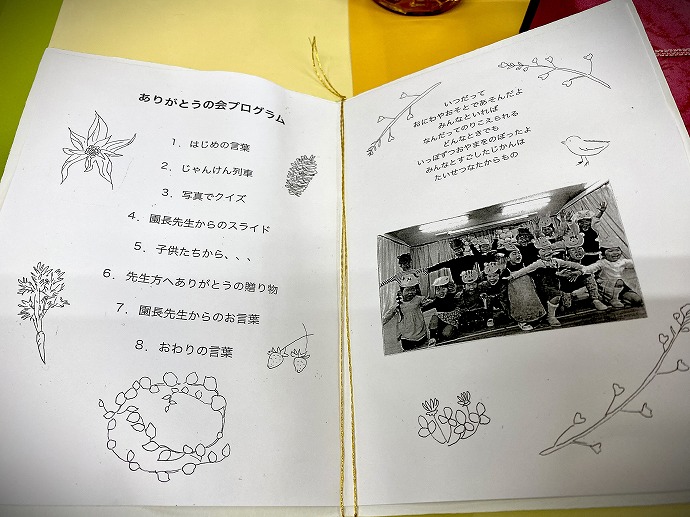 ありがとうの会プログラム
1. はじめの言葉
2. じゃんけん列車
3. 写真でクイズ
4. 園長先生からのスライド
5. 子供たちから、、、
6. 先生方へありがとうの贈り物
7. 園長先生からのお言葉
8. おわりの言葉
いつだって
おにわやおそとであそんだよ
みんなといれば
なんだってのりこえられる
どんなときでも
いっぽずつおやまをのぼったよ
みんなとすごしたじかんは
たいせつなたからもの